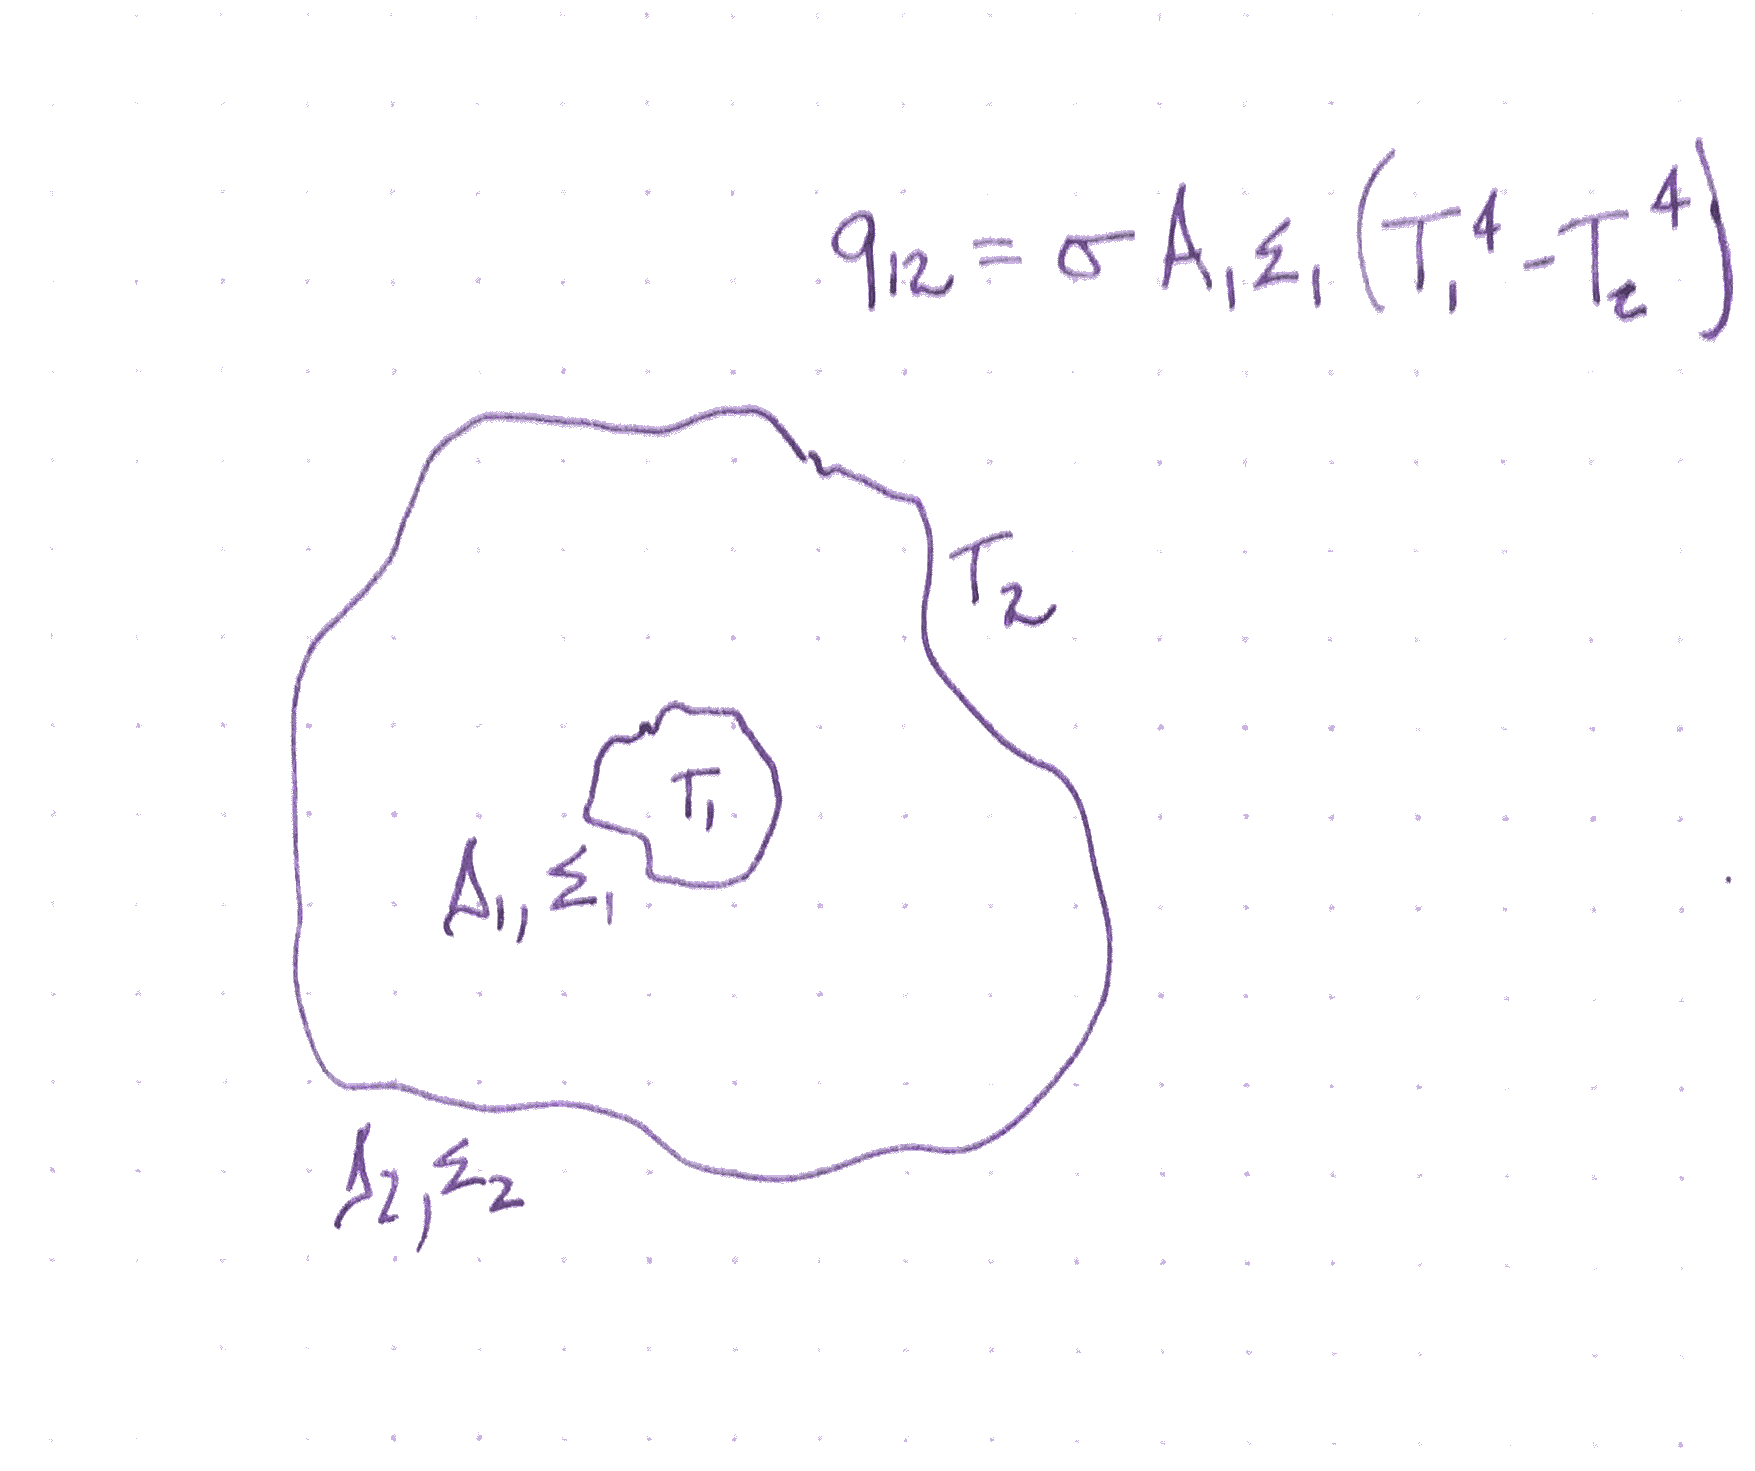 q₁₂ = σ A₁ ε₁ (T₁⁴ - T₂⁴)
T₂
T₁
A₁, ε₁
A₂, ε₂